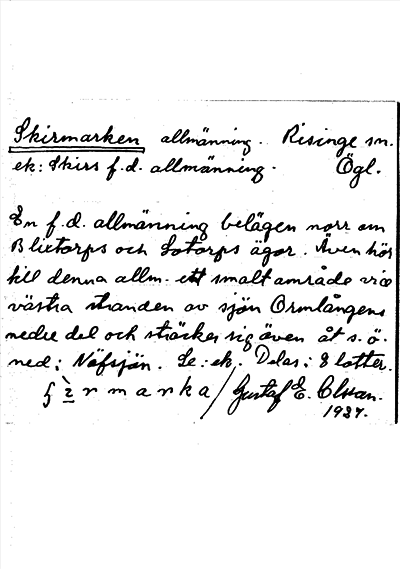 Skirmarken allmänning. Risinge sn.
ek: Skirs f.d. allmänning. Ögl.
En f.d. allmänning belägen norr om
Blixtorps och Sotorps ägor. Även hör
till denna allm. ett smalt område vid
västra stranden av sjön Ormlångens
nedre del och sträcker sig även åt s.ö.
ned i Näfsjön. Se: ek. Delas i 8 lotter.
Gustaf E. Olsson.
1937.